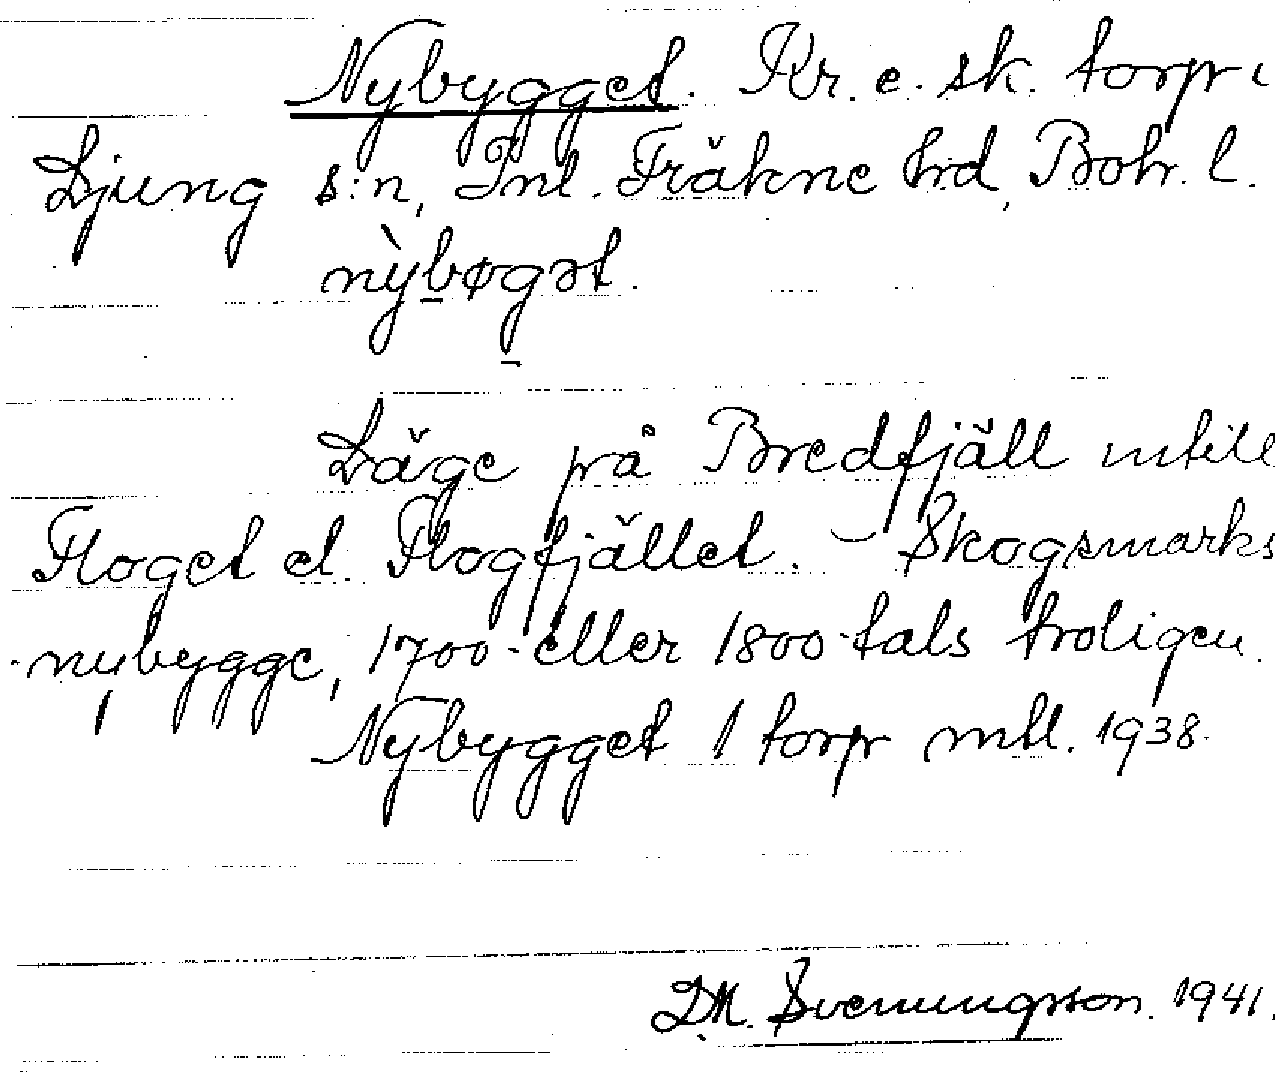 Nybygget. Kr. e. sk. torp i
Ljung s:n, Inl. Fräkne hrd, Boh. l.
nỳbøgət.
Läge på Bredfjäll intill
Floget el. Flogfjället. - Skogsmarks
nybygge, 1700- eller 1800-tals troligen.
Nybygget 1 torp mtl. 1938.
D.M. Svenningsson. 1941.